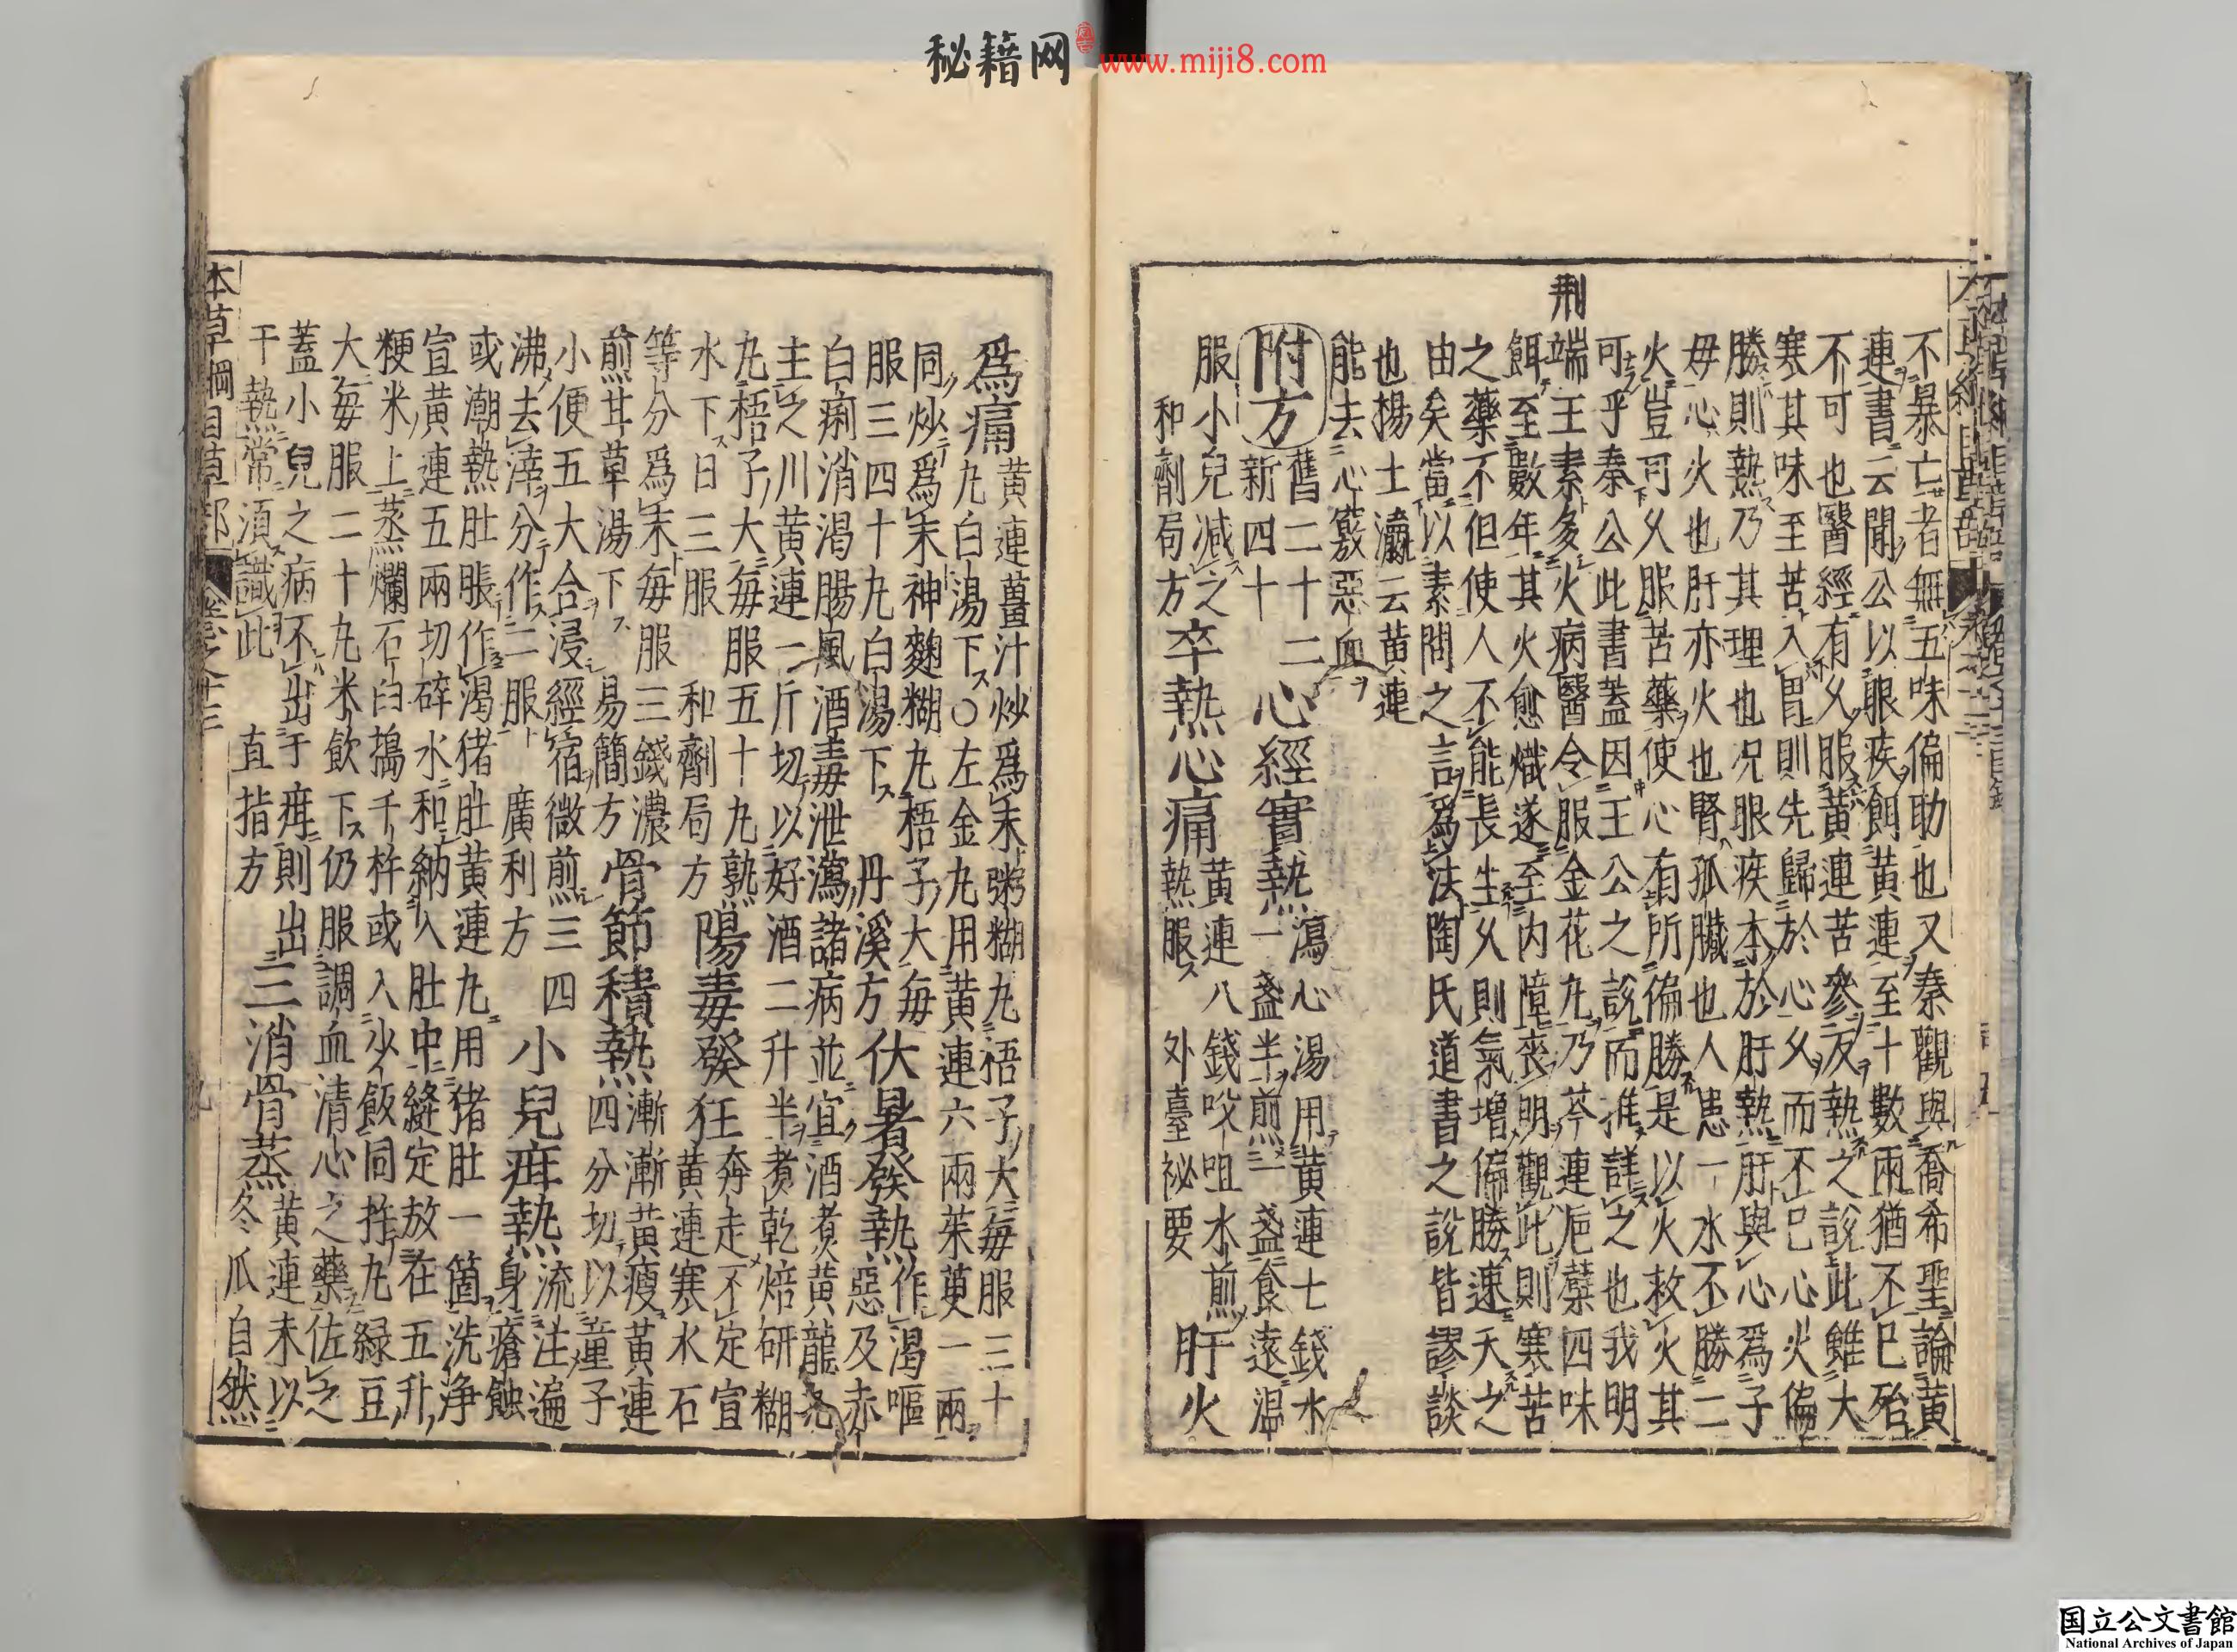 秘籍网 www.miji8.com
不暴亡者無五味偏助也又秦觀與喬希聖論黃
連書云聞公以眼疾餌黃連至十數兩猶不已殆
不可也醫經有久服黃連苦參反熱之說此雖大
寒其味至苦入胃則先歸於心久而不已心火偏
勝則熱乃其理也况眼疾本於肝熱肝與心爲子
母心火也肝亦火也腎孤臟也人患一水不勝二
火豈可久服苦藥使心有所偏勝是以火救火其
可乎秦公此書蓋因王公之說而推詳之也我明
荆端王素多火病醫令服金花丸乃芩連梔蘗四味
餌至數年其火愈熾遂至內障喪明觀此則寒苦
之藥不但使人不能長生久則氣增偏勝速夭之
由矣當以素問之言爲法陶氏道書之說皆謬談
也楊士瀛云黃連
能去心竅惡血
附方
舊二十二
新四十
心經實熱
瀉心湯用黃連七錢水
一盞半煎一盞食遠溫
服小兒減之
和劑局方
卒熱心痛
黃連八錢㕮咀水煎
熱服 外臺祕要
肝火
爲痛
黃連薑汁炒爲末粥糊丸梧子大每服三十
丸白湯下〇左金丸用黃連六兩茱萸一兩
同炒爲末神麴糊丸梧子大每
服三四十丸白湯下 丹溪方
伏暑發熱
作渴嘔
惡及赤
白痢消渴腸風酒毒泄瀉諸病並宜酒煮黃龍丸
主之川黃連一斤切以好酒二升半煮乾焙研糊
丸梧子大每服五十丸熟
水下日三服 和劑局方
陽毒發狂
奔走不定宣
黃連寒水石
等分爲末每服三錢濃
煎甘草湯下 易簡方
骨節積熱
漸漸黃瘦黃連
四分切以童子
小便五大合浸經宿微煎三四
沸去滓分作二服 廣利方
小兒疳熱
流注遍
身瘡蝕
或潮熱肚脹作渴猪肚黃連丸用猪肚一箇洗净
宣黃連五兩切碎水和納入肚中縫定放在五升
粳米上蒸爛石臼搗千杵或入少飯同杵丸綠豆
大每服二十丸米飲下仍服調血清心之藥佐之
蓋小兒之病不出于疳則出
干熱常須識此 直指方
三消骨蒸
黃連末以
冬瓜自然
本草綱目草部 卷之十三
国立公文書館
National Archives of Japan